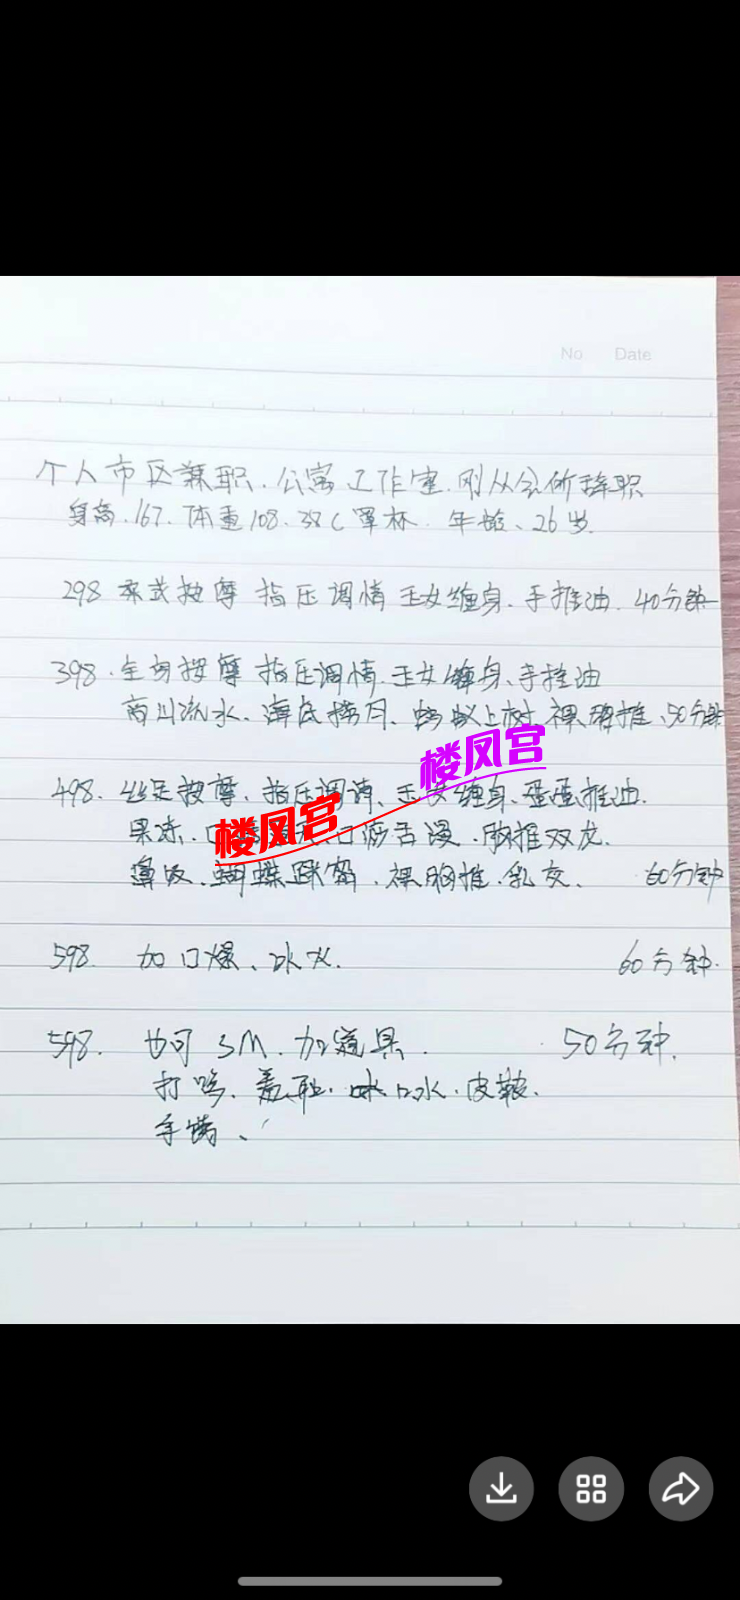 No Date
个人市区兼职.公寓工作室.刚从会所辞职
身高.167.体重108.38C罩杯.年龄、26岁.
298 泰式按摩 指压调情 玉女缠身.手推油.40分钟
398.全身按摩 指压调情.玉女缠身、手推油
高山流水、海底捞月、蚂蚁上树.裸胸推、50分钟
498.丝足按摩、指压调情、玉女缠身、蛋蛋推油.
楼凤宫
果冻、舌漫、胸推双龙.
楼凤宫
蝴蝶.裸胸推.乳交、60分钟
598. 加口爆、冰火. 60分钟.
598. 也可SM.加道具. 50分钟.
打.羞耻.口水.皮鞭.
手铐、